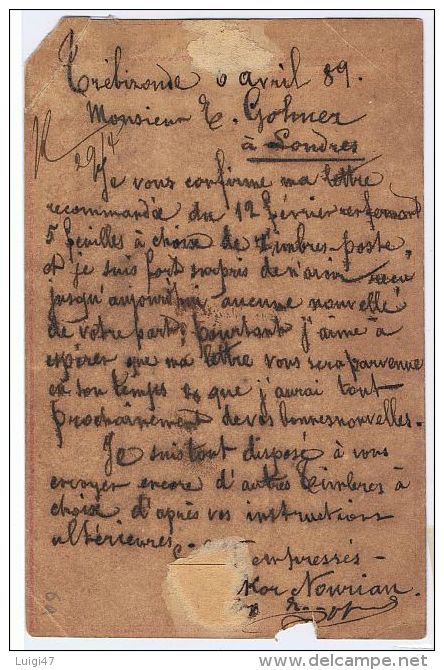 Trébizonde 6 avril 89.
Monsieur E. Golmer
à Londres
Je vous confirme ma lettre
recommandée du 12 février renfermant
5 feuilles à choix de timbres-poste,
et je suis fort surpris de n'avoir reçu
jusqu'aujourd'hui aucune nouvelle
de votre part; pourtant j'aime à
espérer que ma lettre vous sera parvenue
en son temps et que j'aurai tout
prochainement de vos bonnes nouvelles.
Je suis tout disposé à vous
envoyer encore d'autres timbres à
choix d'après vos instructions
ultérieures.
empressés -
Nourian.
Luigi47